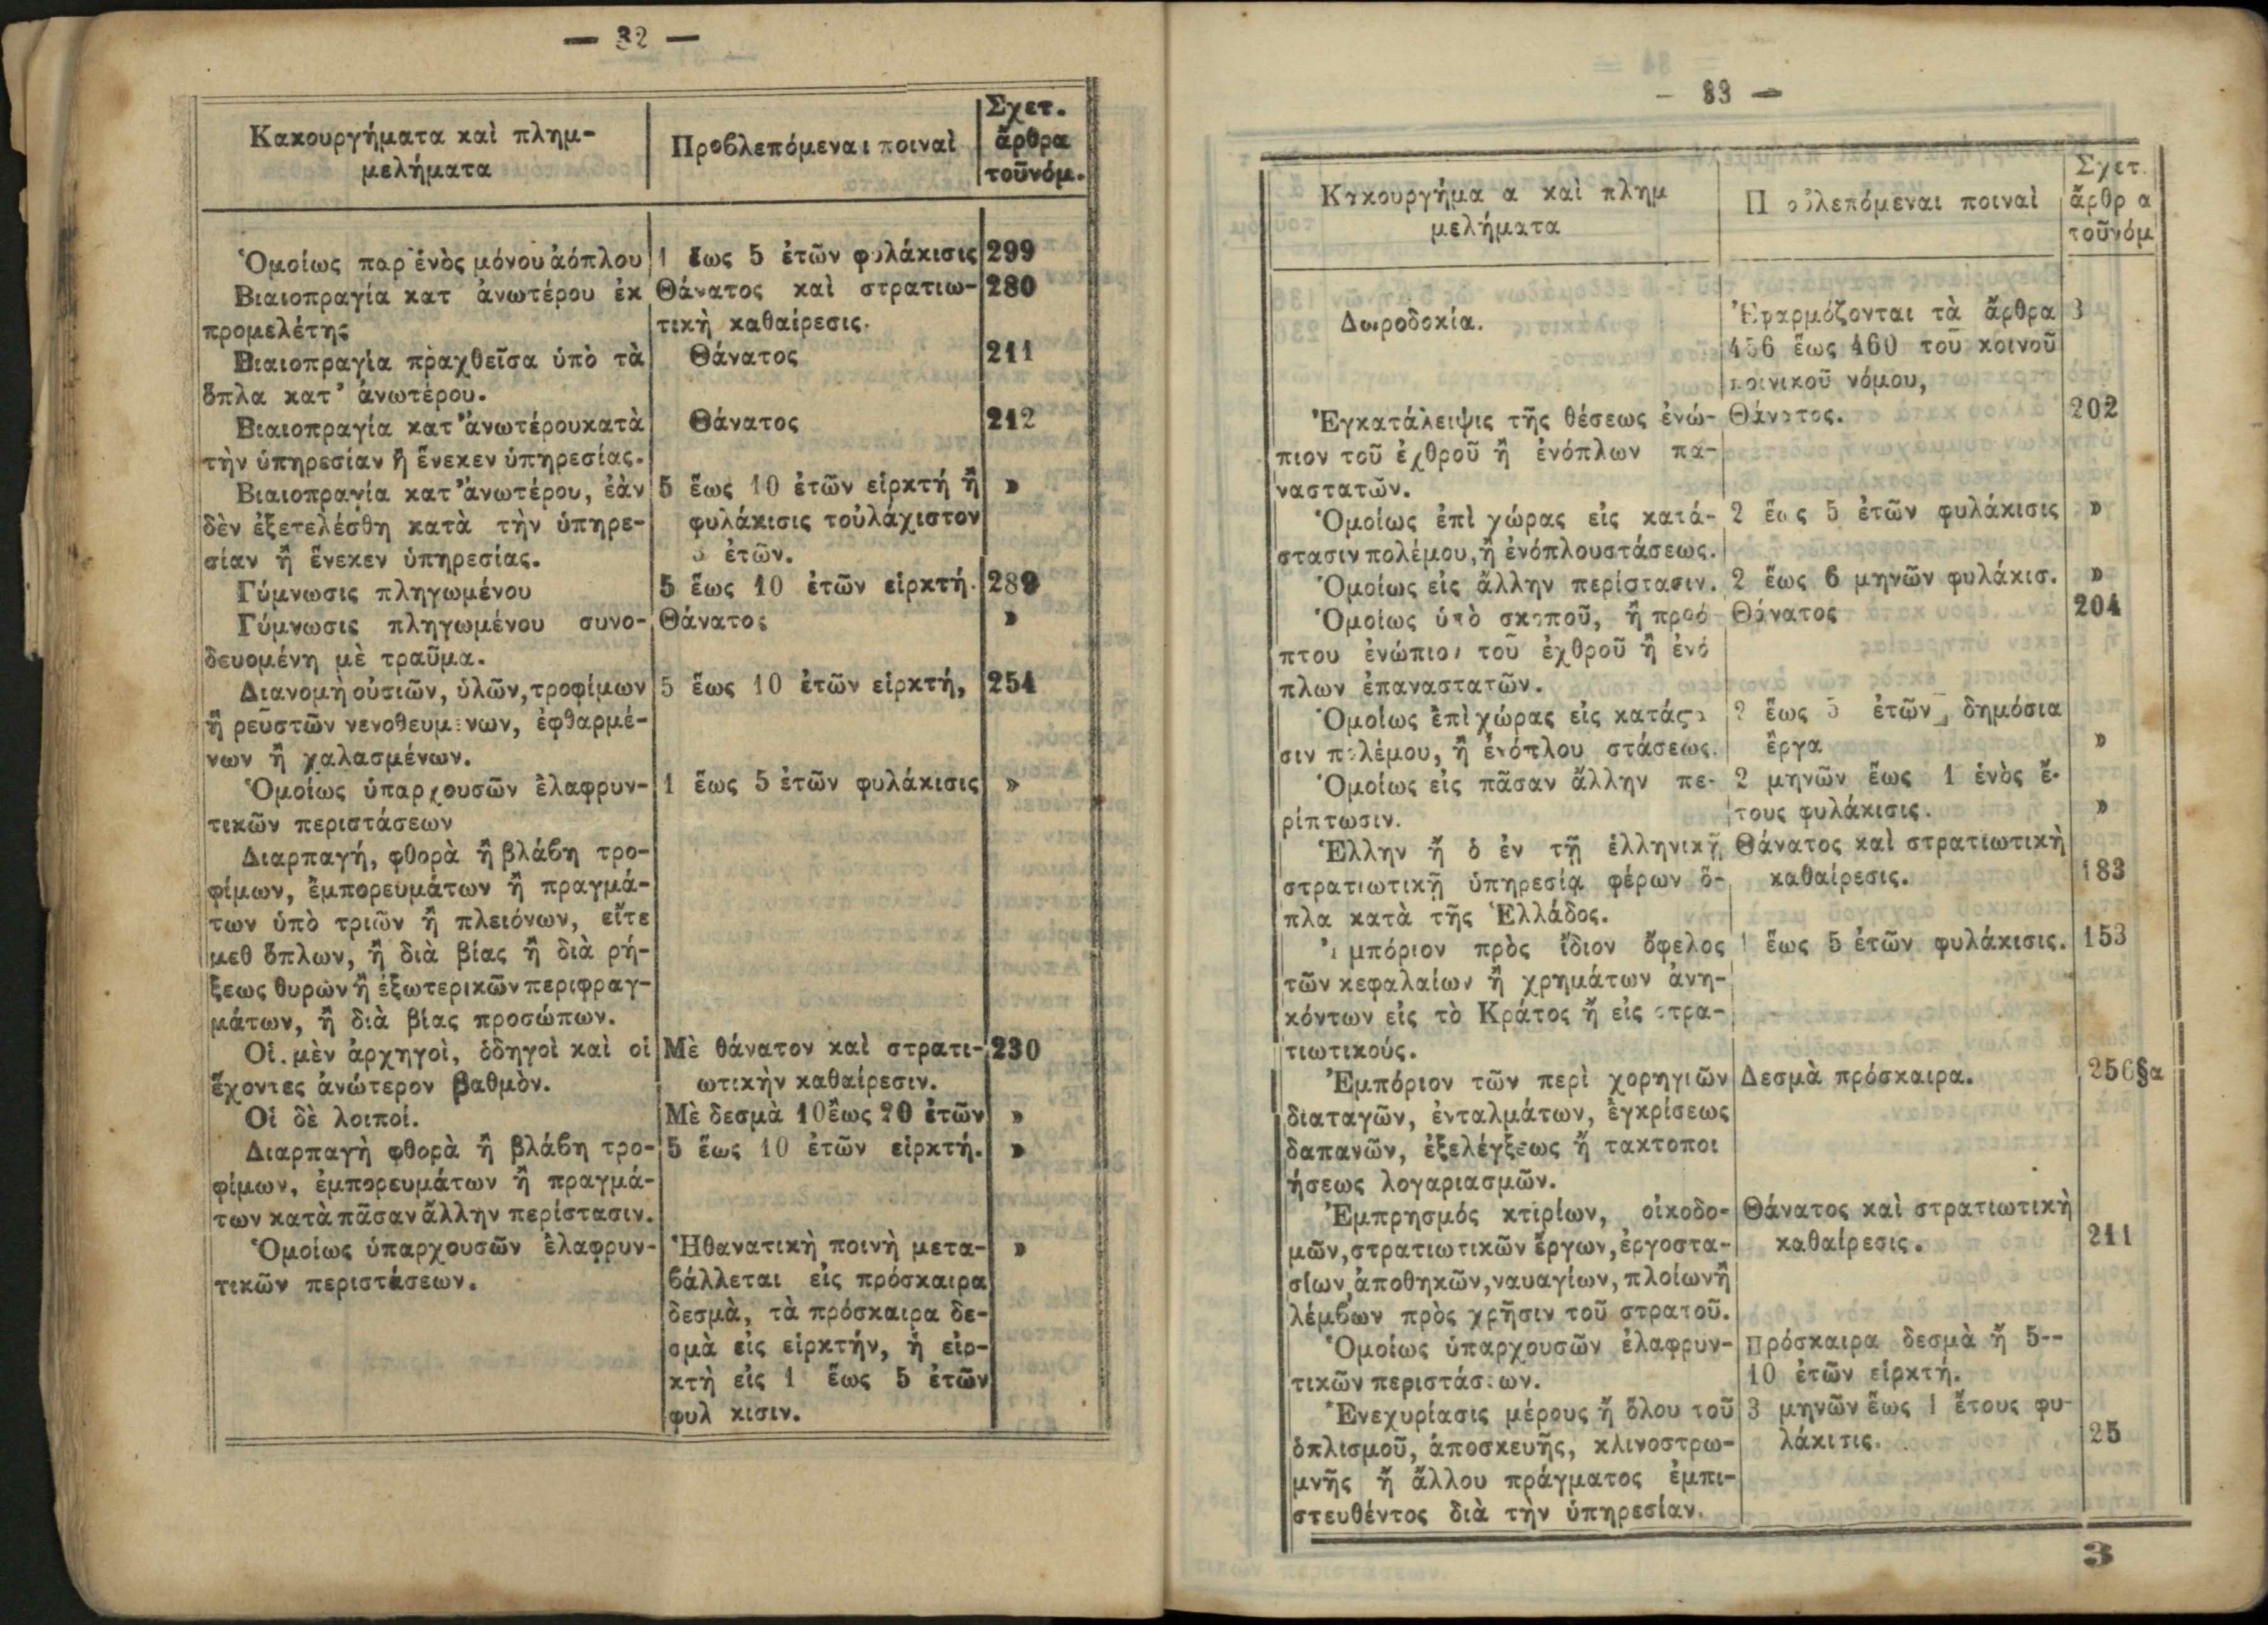 — 32 —
Κακουργήματα καὶ πλημ-
μελήματα
Προβλεπόμεναι ποιναὶ
Σχετ.
ἄρθρα
τοῦνόμ.
Ὁμοίως παρ ἑνὸς μόνου ἀόπλου 1 ἕως 5 ἐτῶν φυλάκισις 299
Βιαιοπραγία κατ ἀνωτέρου ἐκ Θάνατος καὶ στρατιω- 280
προμελέτης τικὴ καθαίρεσις.
Βιαιοπραγία πραχθεῖσα ὑπὸ τὰ Θάνατος 211
ὅπλα κατ' ἀνωτέρου.
Βιαιοπραγία κατ' ἀνωτέρου κατὰ Θάνατος 212
τὴν ὑπηρεσίαν ἢ ἕνεκεν ὑπηρεσίας.
Βιαιοπραγία κατ' ἀνωτέρου, ἐὰν 5 ἕως 10 ἐτῶν εἱρκτή ἢ »
δὲν ἐξετελέσθη κατὰ τὴν ὑπηρε- φυλάκισις τοὐλάχιστον
σίαν ἢ ἕνεκεν ὑπηρεσίας. ἐτῶν.
Γύμνωσις πληγωμένου 5 ἕως 10 ἐτῶν εἱρκτή. 289
Γύμνωσις πληγωμένου συνο- Θάνατος »
δευομένη μὲ τραῦμα.
Διανομὴ οὐσιῶν, ὑλῶν, τροφίμων 5 ἕως 10 ἐτῶν εἱρκτή, 254
ἢ ρευστῶν νενοθευμένων, ἐφθαρμέ-
νων ἢ χαλασμένων.
Ὁμοίως ὑπαρχουσῶν ἐλαφρυν- 1 ἕως 5 ἐτῶν φυλάκισις »
τικῶν περιστάσεων
Διαρπαγή, φθορὰ ἢ βλάβη τρο-
φίμων, ἐμπορευμάτων ἢ πραγμά-
των ὑπὸ τριῶν ἢ πλειόνων, εἴτε
μεθ ὅπλων, ἢ διὰ βίας ἢ διὰ ρή-
ξεως θυρῶν ἢ ἐξωτερικῶν περιφραγ-
μάτων, ἢ διὰ βίας προσώπων.
Οἱ. μὲν ἀρχηγοὶ, ὁδηγοὶ καὶ οἱ Μὲ θάνατον καὶ στρατι- 230
ἔχοντες ἀνώτερον βαθμὸν. ωτικὴν καθαίρεσιν.
Οἱ δὲ λοιποί. Μὲ δεσμὰ 10 ἕως 20 ἐτῶν »
Διαρπαγὴ φθορὰ ἢ βλάβη τρο- 5 ἕως 10 ἐτῶν εἱρκτή. »
φίμων, ἐμπορευμάτων ἢ πραγμά-
των κατὰ πᾶσαν ἄλλην περίστασιν.
Ὁμοίως ὑπαρχουσῶν ἐλαφρυν- Ἡ θανατικὴ ποινὴ μετα- »
τικῶν περιστάσεων. βάλλεται εἰς πρόσκαιρα
δεσμὰ, τὰ πρόσκαιρα δε-
σμὰ εἰς εἱρκτήν, ἡ εἱρ-
κτὴ εἰς 1 ἕως 5 ἐτῶν
φυλ κισιν.
- 33 —
Κακουργήμα α καὶ πλημ
μελήματα
Π οβλεπόμεναι ποιναὶ
Σχετ.
ἄρθρ α
τοῦνόμ
Δωροδοκία. Ἐφαρμόζονται τὰ ἄρθρα 3
456 ἕως 460 τοῦ κοινοῦ
ποινικοῦ νόμου,
Ἐγκατάλειψις τῆς θέσεως ἐνώ- Θάνατος. 202
πιον τοῦ ἐχθροῦ ἢ ἐνόπλων πα-
ναστατῶν.
Ὁμοίως ἐπὶ χώρας εἰς κατά- 2 ἕως 5 ἐτῶν φυλάκισις »
στασιν πολέμου, ἢ ἐνόπλου στάσεως.
Ὁμοίως εἰς ἄλλην περίστασιν. 2 ἕως 6 μηνῶν φυλάκισ. »
Ὁμοίως ὑπὸ σκοποῦ, ἢ προό Θάνατος 204
πτου ἐνώπιον τοῦ ἐχθροῦ ἢ ἐνό
πλων ἐπαναστατῶν.
Ὁμοίως ἐπὶ χώρας εἰς κατάστα 2 ἕως 5 ἐτῶν δημόσια
σιν πολέμου, ἢ ἐνόπλου στάσεως. ἔργα »
Ὁμοίως εἰς πᾶσαν ἄλλην πε- 2 μηνῶν ἕως 1 ἑνὸς ἔ-
ρίπτωσιν. τους φυλάκισις. »
Ἕλλην ἢ ὁ ἐν τῇ ἑλληνικῇ Θάνατος καὶ στρατιωτικὴ
στρατιωτικῇ ὑπηρεσίᾳ φέρων ὅ- καθαίρεσις. 183
πλα κατὰ τῆς Ἑλλάδος.
μπόριον πρὸς ἴδιον ὄφελος 1 ἕως 5 ἐτῶν φυλάκισις. 153
τῶν κεφαλαίων ἢ χρημάτων ἀνη-
κόντων εἰς τὸ Κράτος ἢ εἰς στρα-
τιωτικούς.
Ἐμπόριον τῶν περὶ χορηγιῶν Δεσμὰ πρόσκαιρα. 256§α
διαταγῶν, ἐνταλμάτων, ἐγκρίσεως
δαπανῶν, ἐξελέγξεως ἢ τακτοποι
ήσεως λογαριασμῶν.
Ἐμπρησμός κτιρίων, οἰκοδο- Θάνατος καὶ στρατιωτικὴ
μῶν, στρατιωτικῶν ἔργων, ἐργοστα- καθαίρεσις. 211
σίων, ἀποθηκῶν, ναυαγίων, πλοίων ἢ
λέμβων πρὸς χρῆσιν τοῦ στρατοῦ.
Ὁμοίως ὑπαρχουσῶν ἐλαφρυν- Πρόσκαιρα δεσμὰ ἢ 5--
τικῶν περιστάσεων. 10 ἐτῶν εἱρκτή.
Ἐνεχυρίασις μέρους ἢ ὅλου τοῦ 3 μηνῶν ἕως 1 ἔτους φυ-
ὁπλισμοῦ, ἀποσκευῆς, κλινοστρω- λάκισις. 25
μνῆς ἢ ἄλλου πράγματος ἐμπι-
στευθέντος διὰ τὴν ὑπηρεσίαν.
3